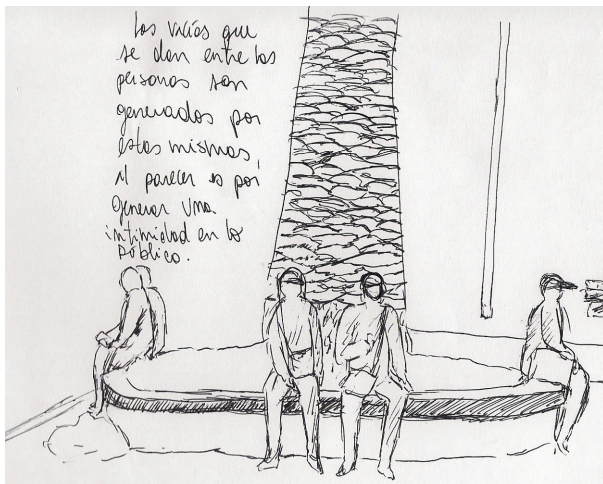 Los vacíos que
se dan entre las
personas son
generados por
estas mismas,
al parecer es por
generar una
intimidad en lo
público.